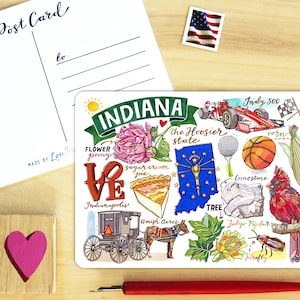 Post Card
to
MADE BY
INDIANA
Indy 500
the Hoosier
state
corn
FLOWER
peony
sugar cream
pie
LOVE
Indianapolis
limestone
TREE
Tulip Poplar
Amish Acres